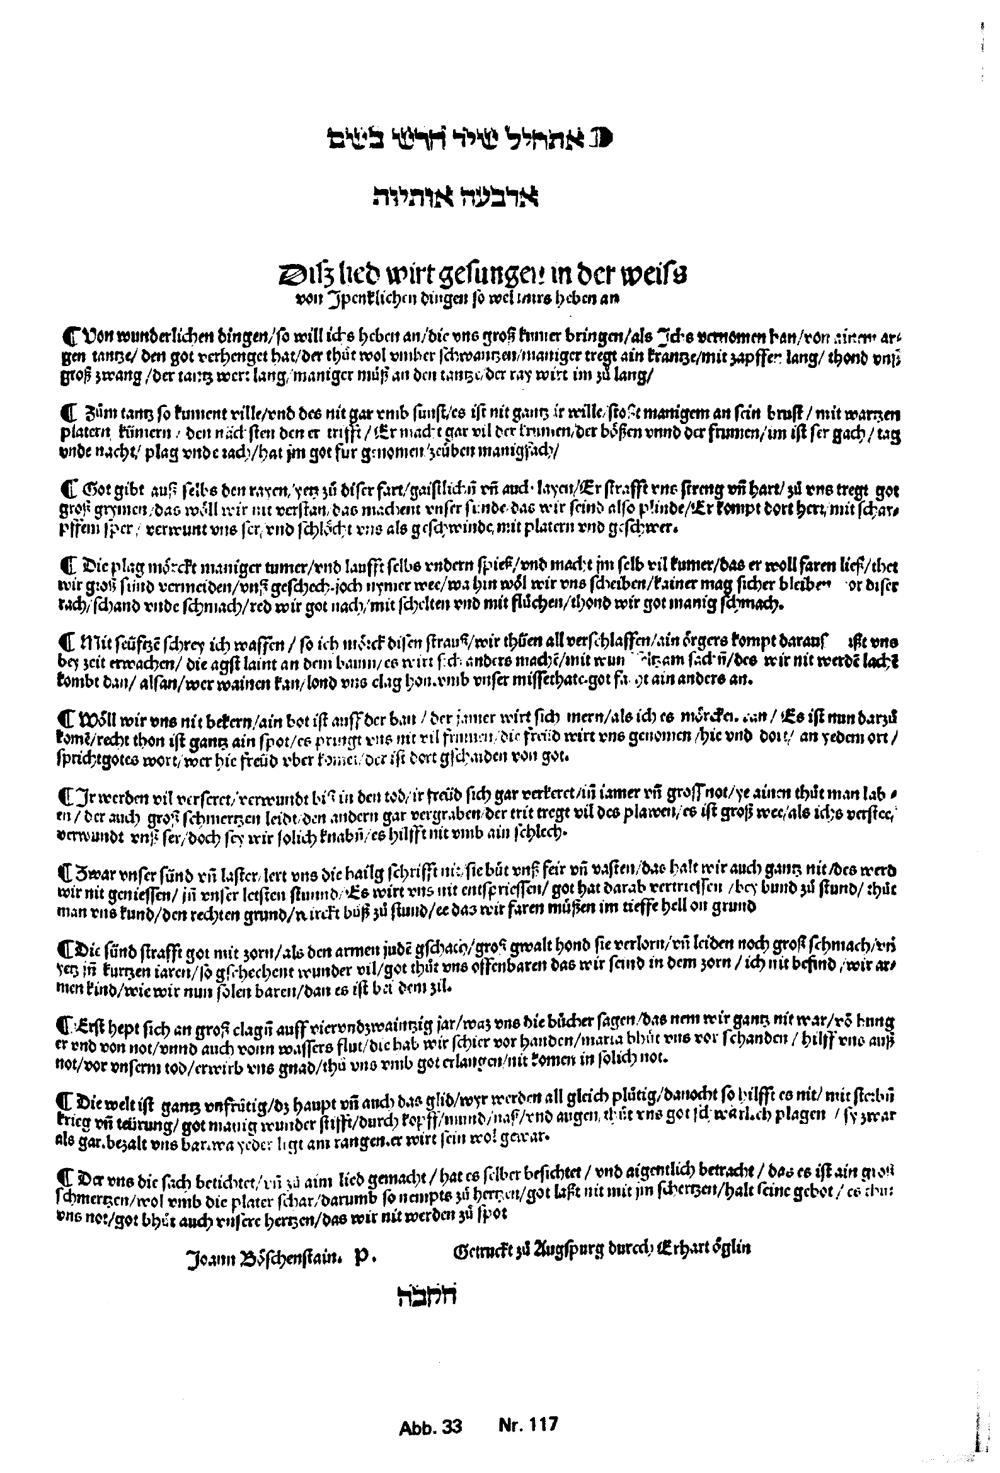 אתחיל שיר חדש בשם
ארבעה אותיות
Diſz lied wirt geſungen in der weiſs
von Jpenklichen dingen ſo wel wirs heben an
¶ Von wunderlichen dingen/ſo will ichs heben an/die vns groß kumer bringen/als Ichs vernomen han/von ainem ar⸗
gen tantze/ den got verhenget hat/der thůt wol vmber ſchwantzen/maniger tregt ain krantze/mit zapffen lang/ thond vnß
groß zwang /der tantz wert lang/maniger můß an den tantze/der ray wirt im zů lang/
¶ Zům tantz ſo kument ville/vnd des nit gar vmb ſunſt/es iſt nit gantz ir wille/ſtoßt manigem an ſein bruſt / mit wartzen
platern kümern / den nächſten den er trifft / Er macht gar vil der krumen/der bößen vnnd der frumen/im iſt ſer gach / tag
vnde nacht/ plag vnde rach/hat jm got fur genomen/zeüben manigfach/
¶ Got gibt auß ſelbs den rayen/yetz zů diſer fart/gaiſtlich vñ auch layen/Er ſtrafft vns ſtreng vñ hart/ zů vns tregt got
groß grymen/das wöll wir nit verſtan/das machent vnſer ſunde/das wir ſeind alſo plinde/Er kompt dort her/mit ſchar⸗
pffem ſper / verwunt vns ſer/vnd ſchlöcht vns als geſchwinde/mit platern vnd geſchwer.
¶ Die plag mörckt maniger tumer/vnd laufft ſelbs vndern ſpieß/vnd macht jm ſelb vil kumer/das er woll faren ließ/thet
wir groß ſünd vermeiden/vnß geſchech joch nymer wee/wa hin wöl wir vns ſcheiben/kainer mag ſicher bleiben vor diſer
rach/ſchand vnde ſchmach/red wir got nach/mit ſchelten vnd mit flüchen/thond wir got manig ſchmach.
¶ Mit ſeüfftzē ſchrey ich waffen / ſo ich mörck diſen ſtrauß/wir thüen all verſchlaffen/ain örgers kompt darauß iſt vns
bey zeit erwachen/ die agſt laint an dem baum/es wirt ſich anders machē/mit ſachñ/des wir nit werdē lachē
kombt dan/ alſan/wer wainen kan/lond vns clag hon/vmb vnſer miſſethate/got ain anders an.
¶ Wöll wir vns nit bekern/ain bot iſt auff der ban / der jamer wirt ſich mern/als ich es mörcken kan/ Es iſt nun darzů
komē/recht thon iſt gantz ain ſpot/es pringt vns nit vil frumen/die freüd wirt vns genomen /hie vnd dort/ an yedem ort /
ſprichtgotes wort/wer hie freüd vber komet/der iſt dort gſchaiden von got.
¶ Ir werden vil verſeret/verwundt biß in den tod/ir freüd ſich gar verkeret/iñ iamer vñ groſſ not/ye ainen thůt man lab ⸗
en / der auch groß ſchmertzen leidt/den andern gar vergraben/der trit tregt vil des plawen/es iſt groß wee/als ichs verſtee/
verwundt vnß ſer/doch ſey wir ſolich knabñ/es hilfft nit vmb ain ſchlech.
¶ Zwar vnſer ſünd vñ laſter/lert vns die hailg ſchrifft nit/ſie büt vnß feir vñ vaſten/das halt wir auch gantz nit/des werd
wir nit genieſſen/ jñ vnſer letſten ſtunnd/Es wirt vns nit entſprieſſen/ got hat darab vertrieſſen /bey bund zů ſtund/ thůt
man vns kund/den rechten grund/wirckt bůß zů ſtund/ee das wir faren můßen im tieffe hell on grund
¶ Die ſünd ſtrafft got mit zorn/als den armen judē gſchach/groß gwalt hond ſie verlorn/vñ leiden noch groß ſchmach/vñ
yetz jñ kurtzen iaren/ſo gſchechent wunder vil/got thůt vns offenbaren das wir ſeind in dem zorn / ich nit befind /wir ar⸗
men kind/wie wir nun ſolen baren/dan es iſt bei dem zil.
¶ Erſt hept ſich an groß clagñ auff vierundzwaintzig jar/waz vns die bücher ſagen/das nem wir gantz nit war/vō hung
er vnd von not/vnnd auch vonn waſſers flut/die hab wir ſchier vor handen/maria bhüt vns vor ſchanden / hilff vns auß
not/vor vnſerm tod/erwirb vns gnad/thů vns vmb got erlangen/nit komen in ſolich not.
¶ Die welt iſt gantz vnfrütig/dz haupt vñ auch das glid/wyr werden all gleich plütig/danocht ſo hilfft es nit/ mit ſterbñ
krieg vñ teürung/ got manig wunder ſtifft/durch kopff/mund/naß/vnd augen/thůt vns got ſchwärlich plagen / ſy zwar
als gar/bezalt vns bar/wa yeder ligt am rangen/er wirt ſein wol gewar.
¶ Der vns die ſach betichtet/vñ zů aim lied gemacht / hat es ſelber beſichtet / vnd aigentlich betracht / das es iſt ain groß
ſchmertzen/wol vmb die plater ſchar/darumb ſo nempts zů hertzen/got laßt nit mit jm ſchertzen/halt ſeine gebot / es thut
vns not/got bhüt auch vnſere hertzen/das wir nit werden zů ſpot
Joann Böſchenſtain. P.
Getruckt zů Augſpurg durch Erhart öglin
הקבה
Abb. 33 Nr. 117